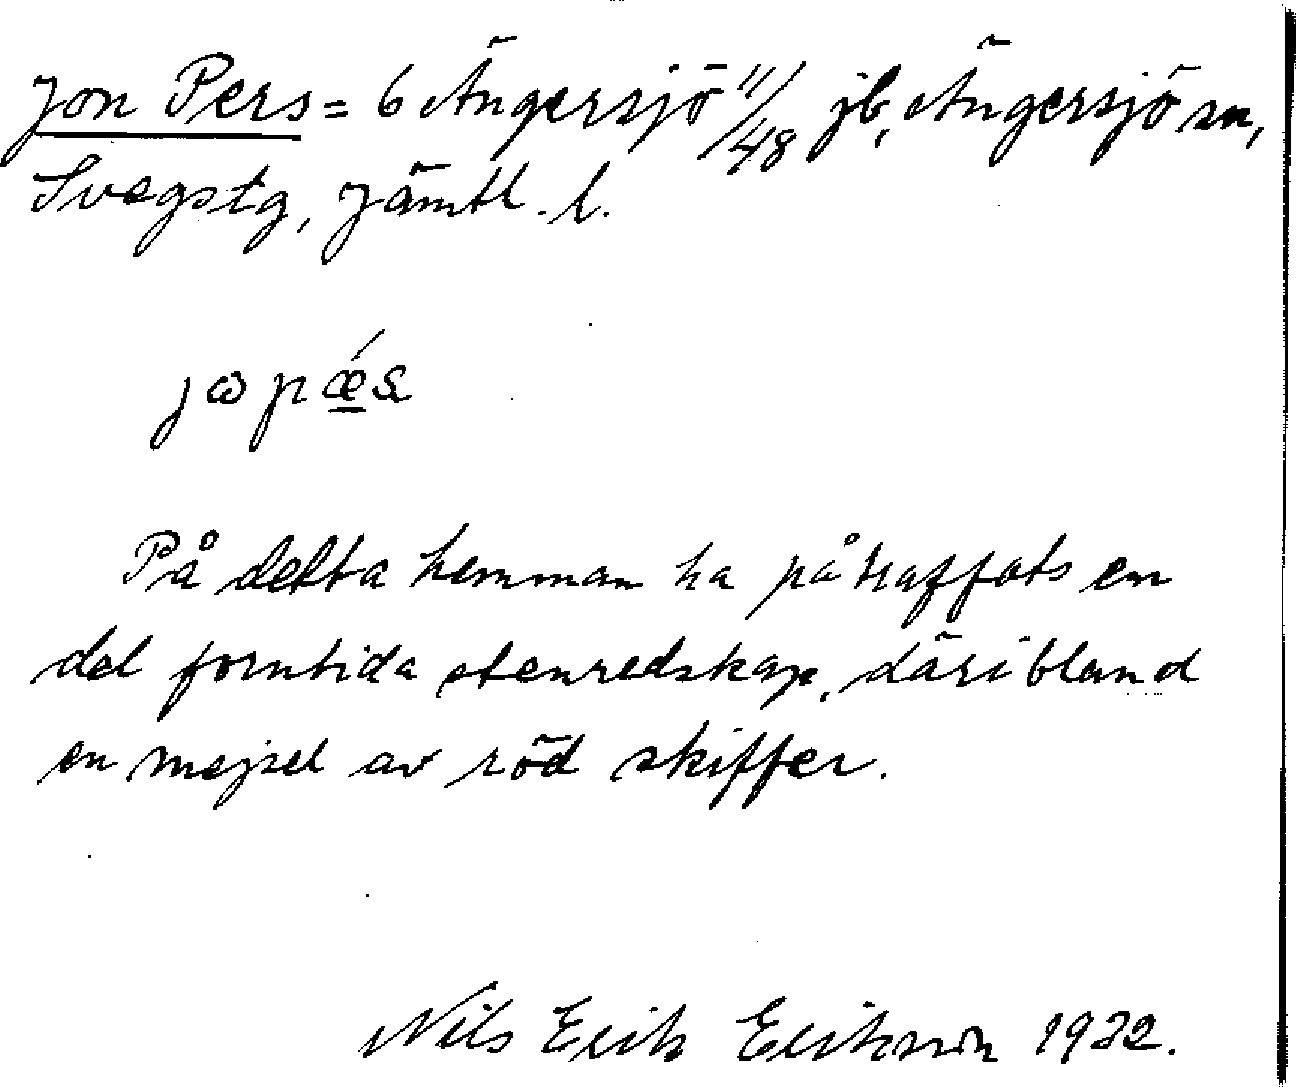 Jon Pers = 6 Ängersjö 11/48 jb, Ängersjö sn,
Svegs tg, Jämtl. l.
jɷ pǽs
På detta hemman ha påträffats en
del forntida stenredskap, däribland
en mejsel av röd skiffer.
Nils Erik Erikson 1932.